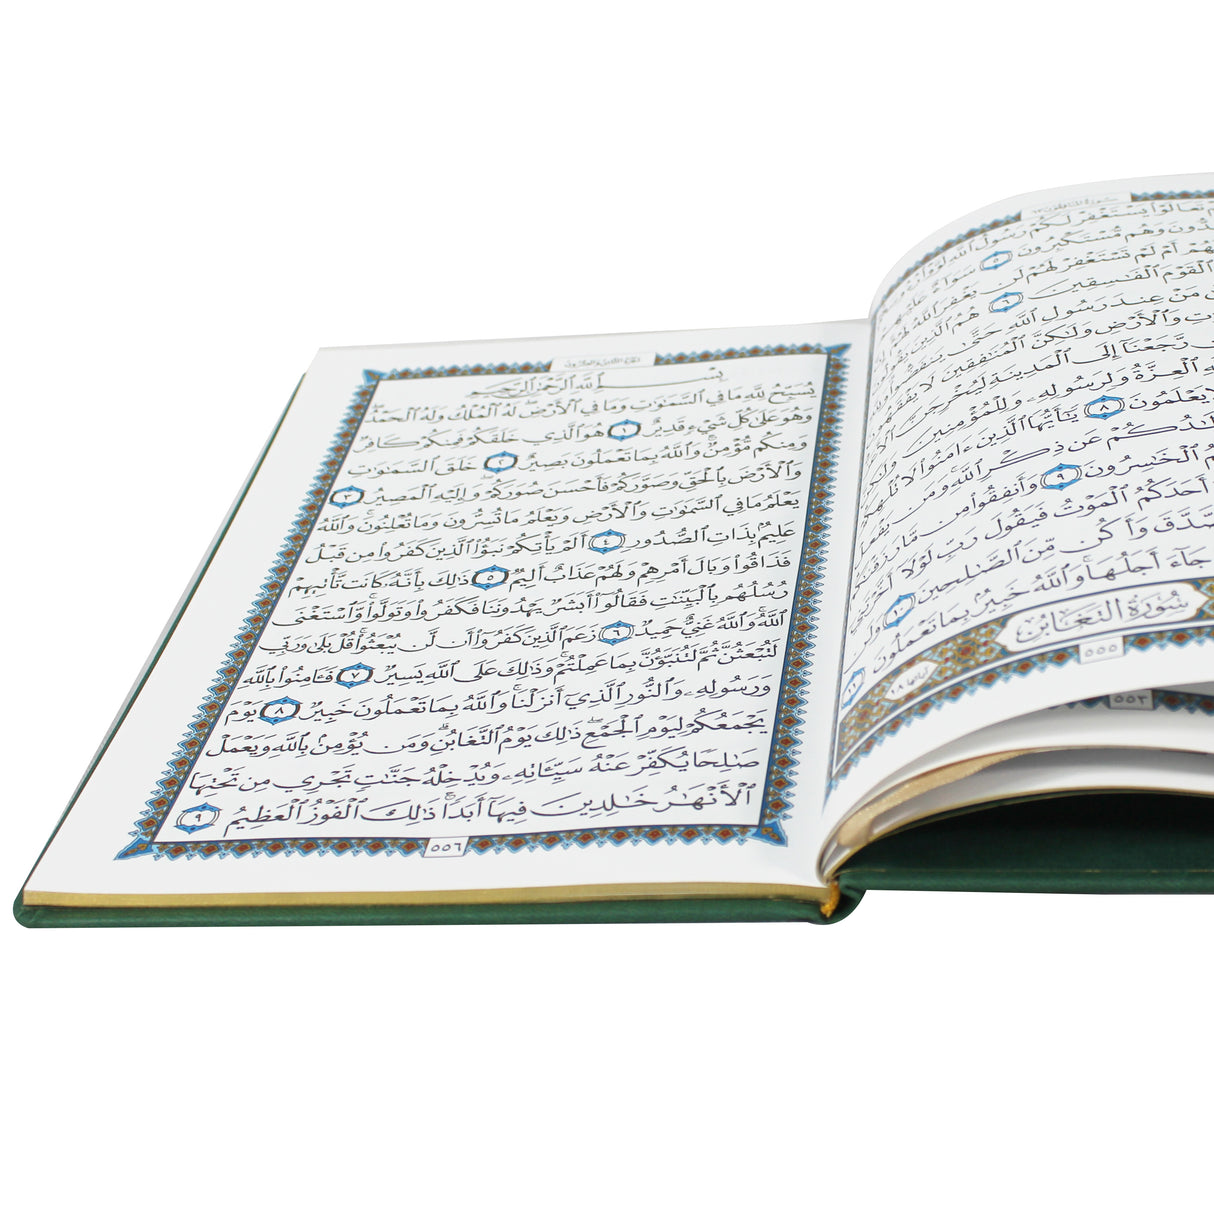 سورة المنافقون ٦٣
تَعَالَوْا۟ يَسْتَغْفِرْ لَكُمْ رَسُولُ ٱللَّهِ لَوَّوْا۟
وَهُم مُّسْتَكْبِرُونَ ٥ سَوَآءٌ عَلَيْهِمْ
أَمْ لَمْ تَسْتَغْفِرْ لَهُمْ لَن يَغْفِرَ ٱللَّهُ لَهُمْ
ٱلْقَوْمَ ٱلْفَٰسِقِينَ ٦ هُمُ ٱلَّذِينَ يَقُولُونَ
مَنْ عِندَ رَسُولِ ٱللَّهِ حَتَّىٰ يَنفَضُّوا۟
وَٱلْأَرْضِ وَلَٰكِنَّ ٱلْمُنَٰفِقِينَ لَا يَفْقَهُونَ
رَّجَعْنَآ إِلَى ٱلْمَدِينَةِ لَيُخْرِجَنَّ
ٱلْعِزَّةُ وَلِرَسُولِهِۦ وَلِلْمُؤْمِنِينَ وَلَٰكِنَّ
لَا يَعْلَمُونَ ٨ يَٰٓأَيُّهَا ٱلَّذِينَ ءَامَنُوا۟ لَا تُلْهِكُمْ
عَن ذِكْرِ ٱللَّهِ وَمَن يَفْعَلْ
ٱلْخَٰسِرُونَ ٩ وَأَنفِقُوا۟ مِن مَّا رَزَقْنَٰكُم
أَحَدَكُمُ ٱلْمَوْتُ فَيَقُولَ رَبِّ لَوْلَآ أَخَّرْتَنِىٓ
وَأَكُن مِّنَ ٱلصَّٰلِحِينَ ١٠ وَلَن
جَآءَ أَجَلُهَا وَٱللَّهُ خَبِيرٌۢ بِمَا تَعْمَلُونَ ١١
سُورَةُ التَّغَابُنِ
آياتها ١٨
٥٥٥
٥٥٣
بِسْمِ ٱللَّهِ ٱلرَّحْمَٰنِ ٱلرَّحِيمِ
يُسَبِّحُ لِلَّهِ مَا فِى ٱلسَّمَٰوَٰتِ وَمَا فِى ٱلْأَرْضِ لَهُ ٱلْمُلْكُ وَلَهُ ٱلْحَمْدُ
وَهُوَ عَلَىٰ كُلِّ شَىْءٍ قَدِيرٌ ١ هُوَ ٱلَّذِى خَلَقَكُمْ فَمِنكُمْ كَافِرٌ
وَمِنكُم مُّؤْمِنٌ وَٱللَّهُ بِمَا تَعْمَلُونَ بَصِيرٌ ٢ خَلَقَ ٱلسَّمَٰوَٰتِ
وَٱلْأَرْضَ بِٱلْحَقِّ وَصَوَّرَكُمْ فَأَحْسَنَ صُوَرَكُمْ وَإِلَيْهِ ٱلْمَصِيرُ ٣
يَعْلَمُ مَا فِى ٱلسَّمَٰوَٰتِ وَٱلْأَرْضِ وَيَعْلَمُ مَا تُسِرُّونَ وَمَا تُعْلِنُونَ وَٱللَّهُ
عَلِيمٌۢ بِذَاتِ ٱلصُّدُورِ ٤ أَلَمْ يَأْتِكُمْ نَبَؤُا۟ ٱلَّذِينَ كَفَرُوا۟ مِن قَبْلُ
فَذَاقُوا۟ وَبَالَ أَمْرِهِمْ وَلَهُمْ عَذَابٌ أَلِيمٌ ٥ ذَٰلِكَ بِأَنَّهُۥ كَانَت تَّأْتِيهِمْ
رُسُلُهُم بِٱلْبَيِّنَٰتِ فَقَالُوٓا۟ أَبَشَرٌ يَهْدُونَنَا فَكَفَرُوا۟ وَتَوَلَّوا۟ وَّٱسْتَغْنَى
ٱللَّهُ وَٱللَّهُ غَنِىٌّ حَمِيدٌ ٦ زَعَمَ ٱلَّذِينَ كَفَرُوٓا۟ أَن لَّن يُبْعَثُوا۟ قُلْ بَلَىٰ وَرَبِّى
لَتُبْعَثُنَّ ثُمَّ لَتُنَبَّؤُنَّ بِمَا عَمِلْتُمْ وَذَٰلِكَ عَلَى ٱللَّهِ يَسِيرٌ ٧ فَـَٔامِنُوا۟ بِٱللَّهِ
وَرَسُولِهِۦ وَٱلنُّورِ ٱلَّذِىٓ أَنزَلْنَا وَٱللَّهُ بِمَا تَعْمَلُونَ خَبِيرٌ ٨ يَوْمَ
يَجْمَعُكُمْ لِيَوْمِ ٱلْجَمْعِ ذَٰلِكَ يَوْمُ ٱلتَّغَابُنِ وَمَن يُؤْمِنۢ بِٱللَّهِ وَيَعْمَلْ
صَٰلِحًا يُكَفِّرْ عَنْهُ سَيِّـَٔاتِهِۦ وَيُدْخِلْهُ جَنَّٰتٍ تَجْرِى مِن تَحْتِهَا
ٱلْأَنْهَٰرُ خَٰلِدِينَ فِيهَآ أَبَدًا ذَٰلِكَ ٱلْفَوْزُ ٱلْعَظِيمُ ٩
٥٥٦